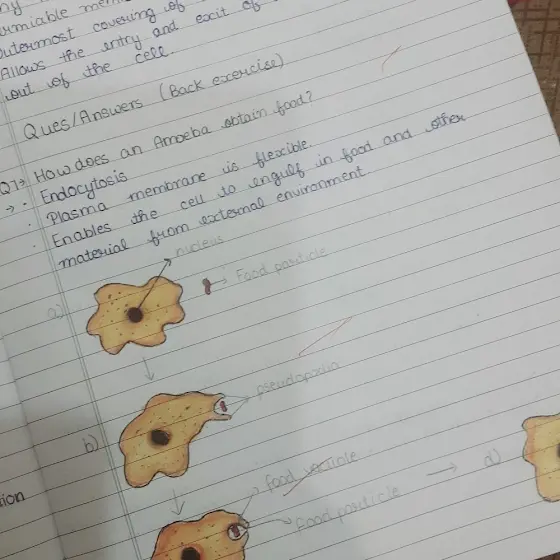 outermost covering of
Allows the entry and exit of
out of the cell.
Ques/Answers (Back exercise)
Q1→ How does an Amoeba obtain food?
→ • Endocytosis
• Plasma membrane is flexible.
• Enables the cell to engulf in food and other
material from external environment.
nucleus
a)
Food particle
pseudopodia
b)
food vacuole
food particle
d)